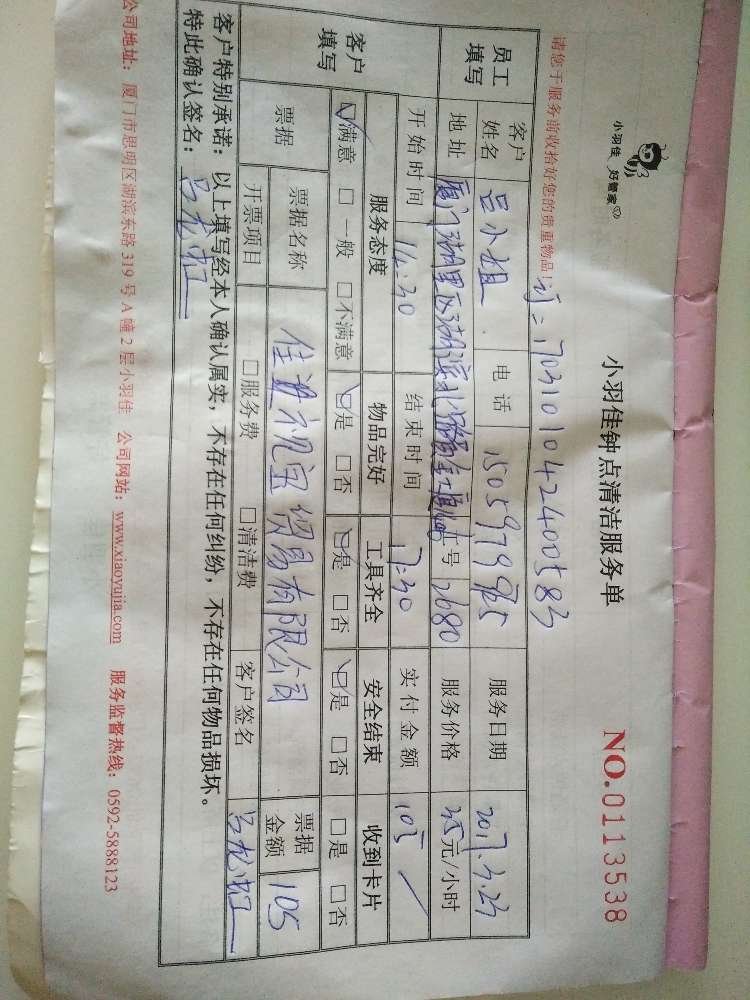 小羽佳 好管家
小羽佳钟点清洁服务单
NO.0113538
请您于服务前收拾好您的贵重物品!
员工填写
客户姓名 吕小姐 电话 服务日期 2017.3.23
地址 工号 2680 服务价格 元/小时
开始时间 14:30 结束时间 17:30 实付金额 105
客户填写
服务态度 物品完好 工具齐全 安全结束 收到卡片
☑满意 □一般 □不满意 ☑是 □否 ☑是 □否 ☑是 □否 □是 □否
票据 票据名称 贸易有限公司 票据金额 105
开票项目 □服务费 □清洁费 客户签名
客户特别承诺:以上填写经本人确认属实,不存在任何纠纷,不存在任何物品损坏。
特此确认签名:
公司地址:厦门市思明区湖滨东路319号A幢2层小羽佳 公司网站:www.xiaoyujia.com 服务监督热线:0592-5888123